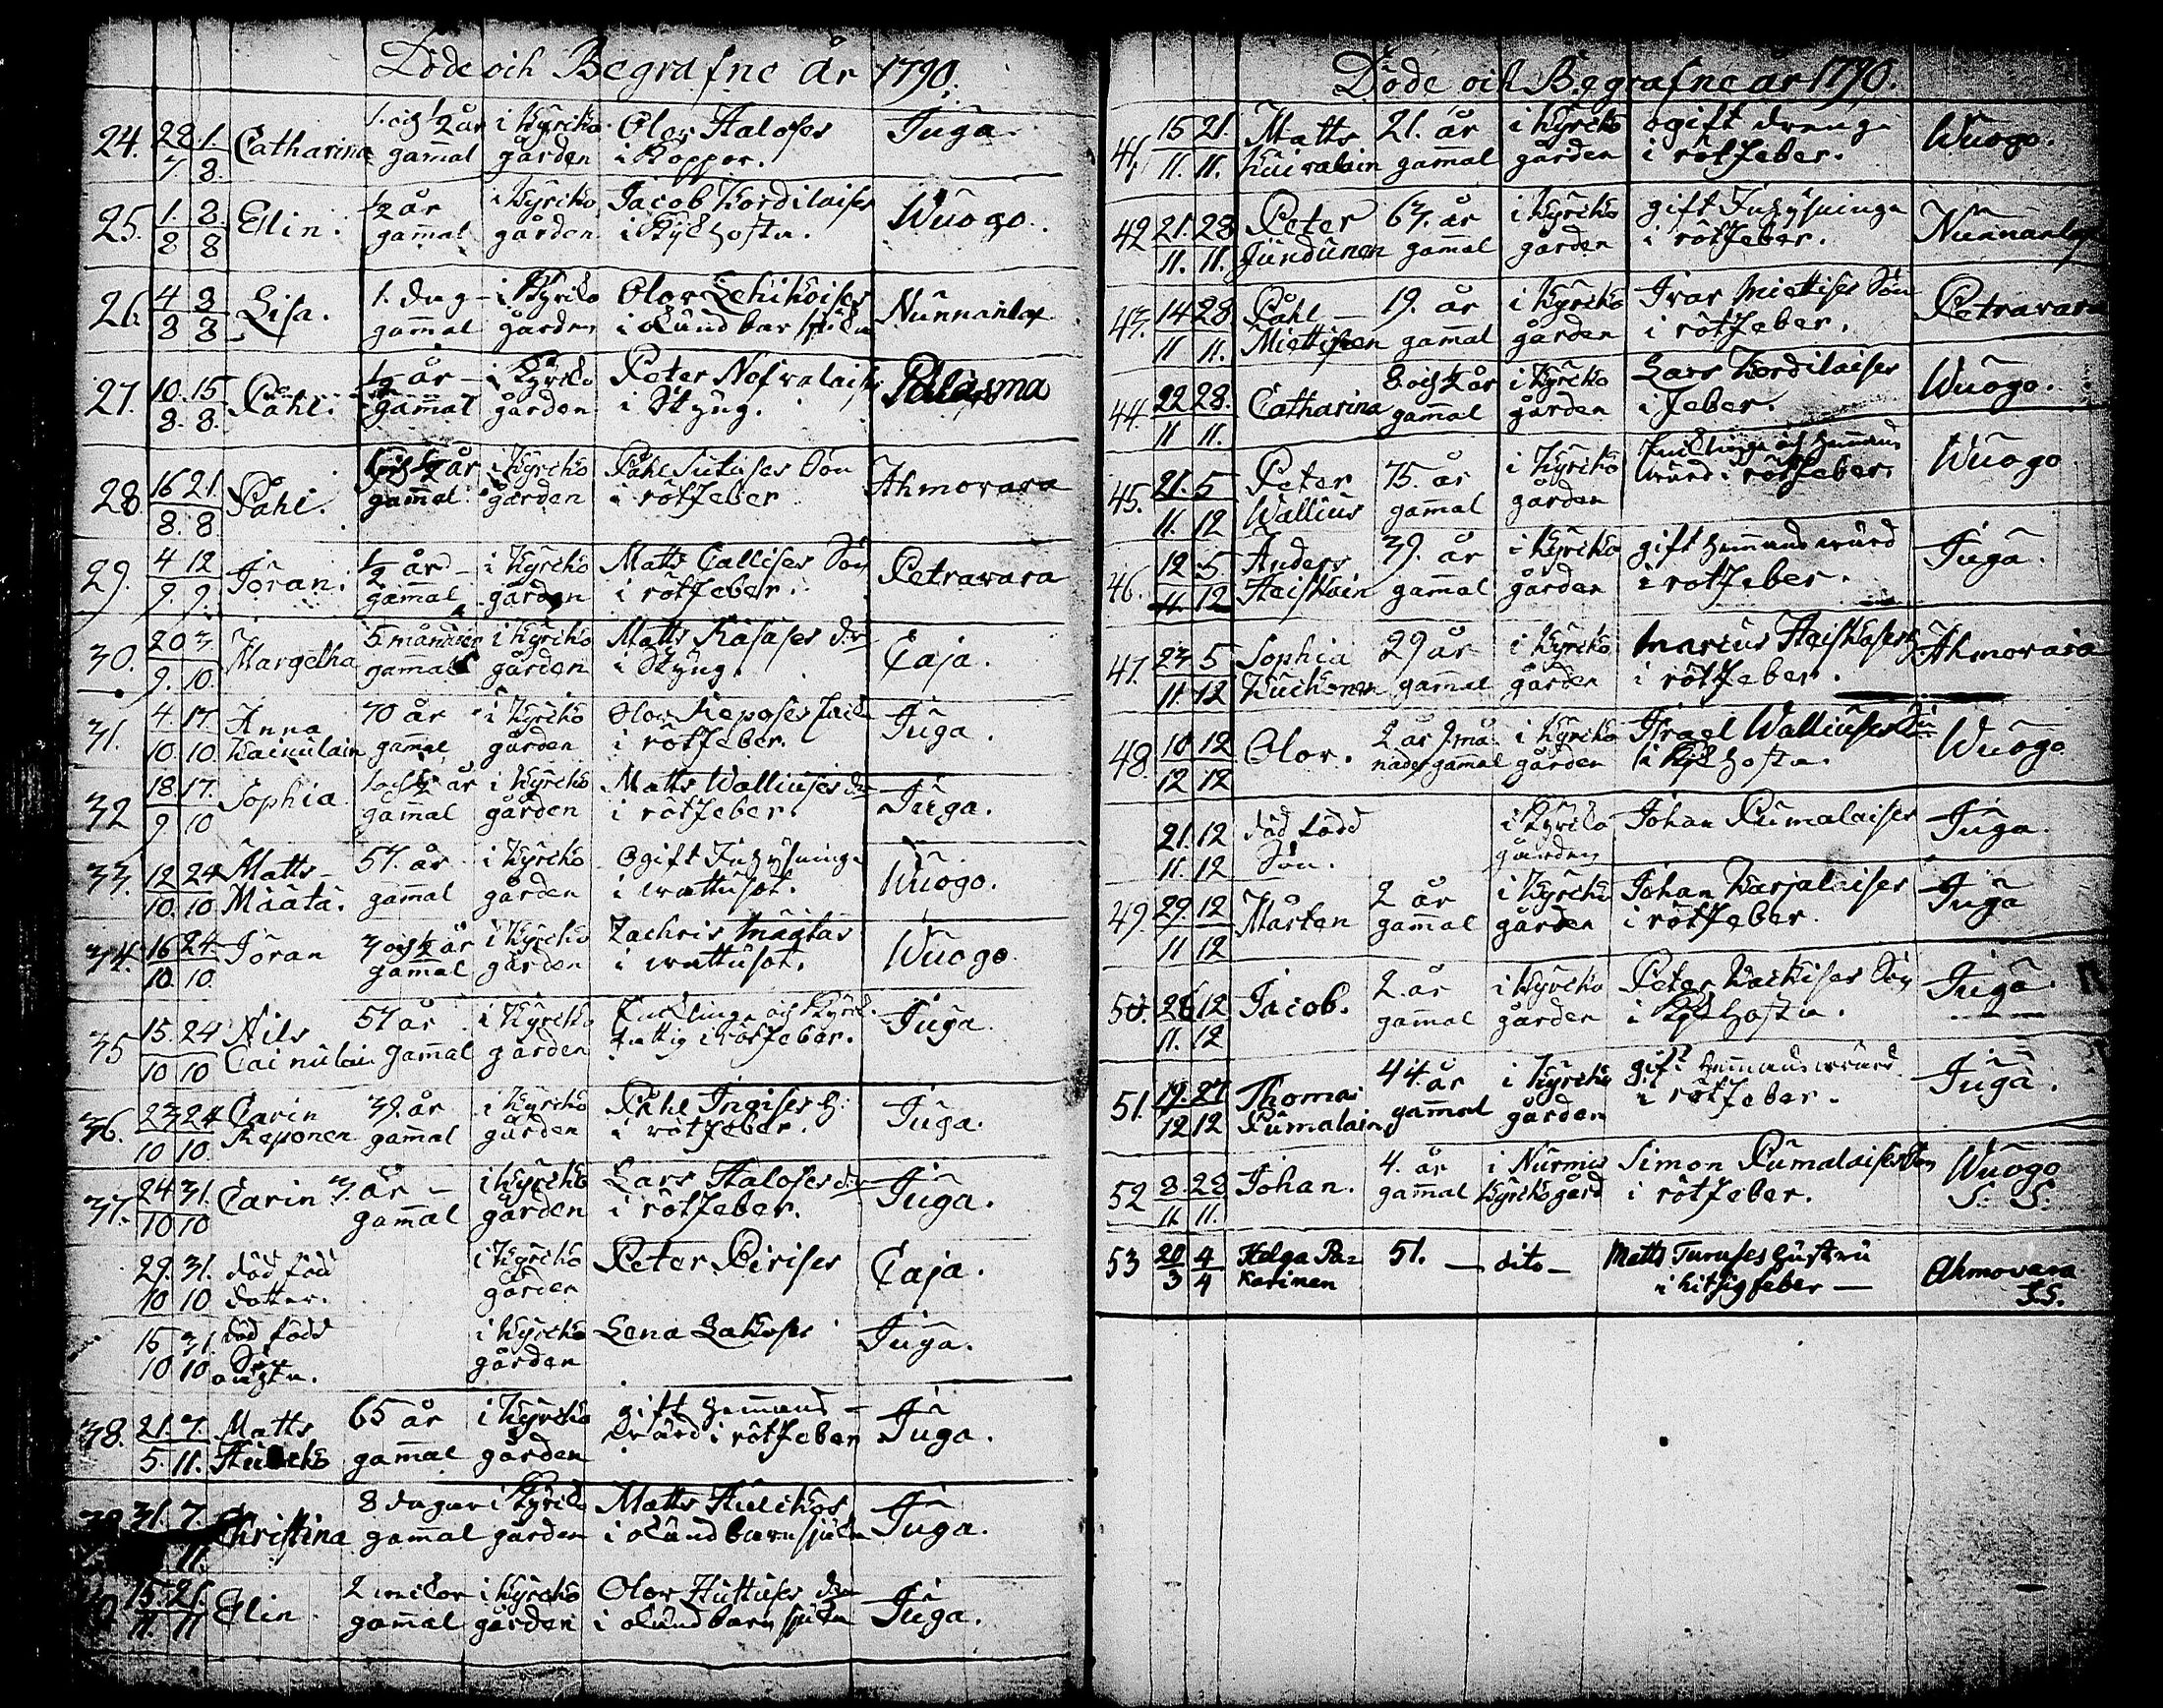 Döde och Begrafne år 1790.
24. 28/7 1./8. Catharina 1. och ½ år gam̄al i Kyrcko gården Olov Haloses i Koppor. Juga.
25. 1./8 8./8 Elin. ½ år gam̄al i Kyrcko gården Jacob Kordilaises i Kyckhosta. Wuogo.
26. 4/8 8/8 Lisa. 1. dag gam̄al i Kyrcko gården Olov Lehikoises i okünd barnsjuka Nunnanlax
27. 10./8. 15/8. Påhl. ½ år gam̄al i Kyrcko gården Peter i Styng. Polasma
28 16/8. 21/8 Påhl. ½ år gam̄al i Kyrcko gården Påhl Sutises Son i rötfeber Ahmovara
29. 4/9. 12/9. Jöran. ½ år gam̄al i Kyrcko gården Matts Callises Son i rötfeber. Petravara
30. 20/9. 3/10 Margetha 5 månader gamal i Kyrcko gården Matts Kasases dr i Styng. Caja.
31. 4./10. 17./10 Anna Kainulain 70 år gam̄al i Kyrcko gården Olov Reposes i rötfeber. Juga.
32 18./9 17./10 Sophia 1 och ½ år gam̄al i Kyrcko gården Matts Walliuses dr i rötfeber. Juga.
33. 12/10. 24/10 Matts Määtä. 57. år gam̄al i Kyrcko gården Ogift Inhysninge i wattusot. Wuogo.
34. 16/10. 24/10. Jöran 3 och ½ år gamal i Kyrcko gården Zachris Määtäs i wattusot. Wuogo
35 15./10 24/10 Nils Cainulain 57 år gam̄al i Kyrcko gården Inhysinge och Kyrck- fattig i rötfeber. Juga.
36. 23/10 24/10. Carin Reponen 39. år gam̄al i Kyrcko gården Påhl Ingises H: i rötfeber. Juga.
37. 24/10 31./10 Carin 3. år gam̄al i Kyrcko gården Lars Haloses dr i rötfeber. Juga.
29./10 31./10 död föd dotter. i Kyrcko gården Peter Pirises Caja.
15/10 31./10 död född Son i Kyrcko gården Lena Lakoses Juga.
38. 21./5. 7./11. Matts 65 år gam̄al i Kyrcko gården gift hem̄ans wärd i rötfeber Juga.
31./ 7./11. Christina 8 dagar gam̄al i Kyrcko gården Matts i okünd barnsjuka Juga.
15/11. 21./11 Elin. 2 weckor gam̄al i Kyrcko gården Olov Huttuses dr i okünd barnsjuka Juga.
Döde och Begrafne år 1790.
41. 15/11. 21./11. Matts Kuivalain 21. år gam̄al i Kyrcko gården ogift dreng i rötfeber. Wuogo.
42 21./11. 28/11. Peter Jundunen 67. år gam̄al i Kyrcko gården gift Inhysninge i rötfeber. Nunnanlax
43. 14/11 28/11. Påhl Miettinen 19. år gam̄al i Kyrcko gården Ivar Miettises Son i rötfeber. Petravara
44. 22/11 28./11. Catharina 8 och ½ år gam̄al i Kyrcko gården Lars Kordilaises i feber. Wuogo.
45. 21./11. 5/12 Peter Wallius 75. år gam̄al i Kyrcko gården Enckling och hem̄ans wärd i rötfeber. Wuogo
46. 12/11. 5/12 Anders Heiskain 39. år gam̄al i Kyrcko gården gift hem̄ans wärd i rotfeber. Juga.
47. 23/11. 5/12 Sophia Kuickonen 29 år gam̄al i Kyrcko gården Marcus Heiskases i rötfeber. Ahmovara
48. 10/12 12/12 Olov. 2 år 2 må nader gam̄al i Kyrcko gården Israel Walliuses Son i Kyckhosta. Wuogo
21./11. 12/12 död född Son. i Kyrcko gården Johan Pumalaises Juga.
49. 29./11 12/12 Mårten 2 år gam̄al i Kyrcko gården Johan Karjalaises i rötfeber. Juga
50. 26/11. 12/12 Jacob. 2. år gam̄al i Kyrcko gården Peter Son i Kyckhosta. Juga.
51. 19./12 27/12 Thomas Pumalain 44. år gam̄al i Kyrcko gården gift hem̄ans wärd. i rötfeber. Juga.
52 8./11. 28/11. Johan. 4. år gam̄al i Nurmis Kyrckogård Simon Pumalaises Son i rötfeber. Wuogo S. S.
53 20/3 4/4 Helga Pakarinen 51. — dito — Matts Turuses Hustru i hitsig feber — Ahmovara S.S.